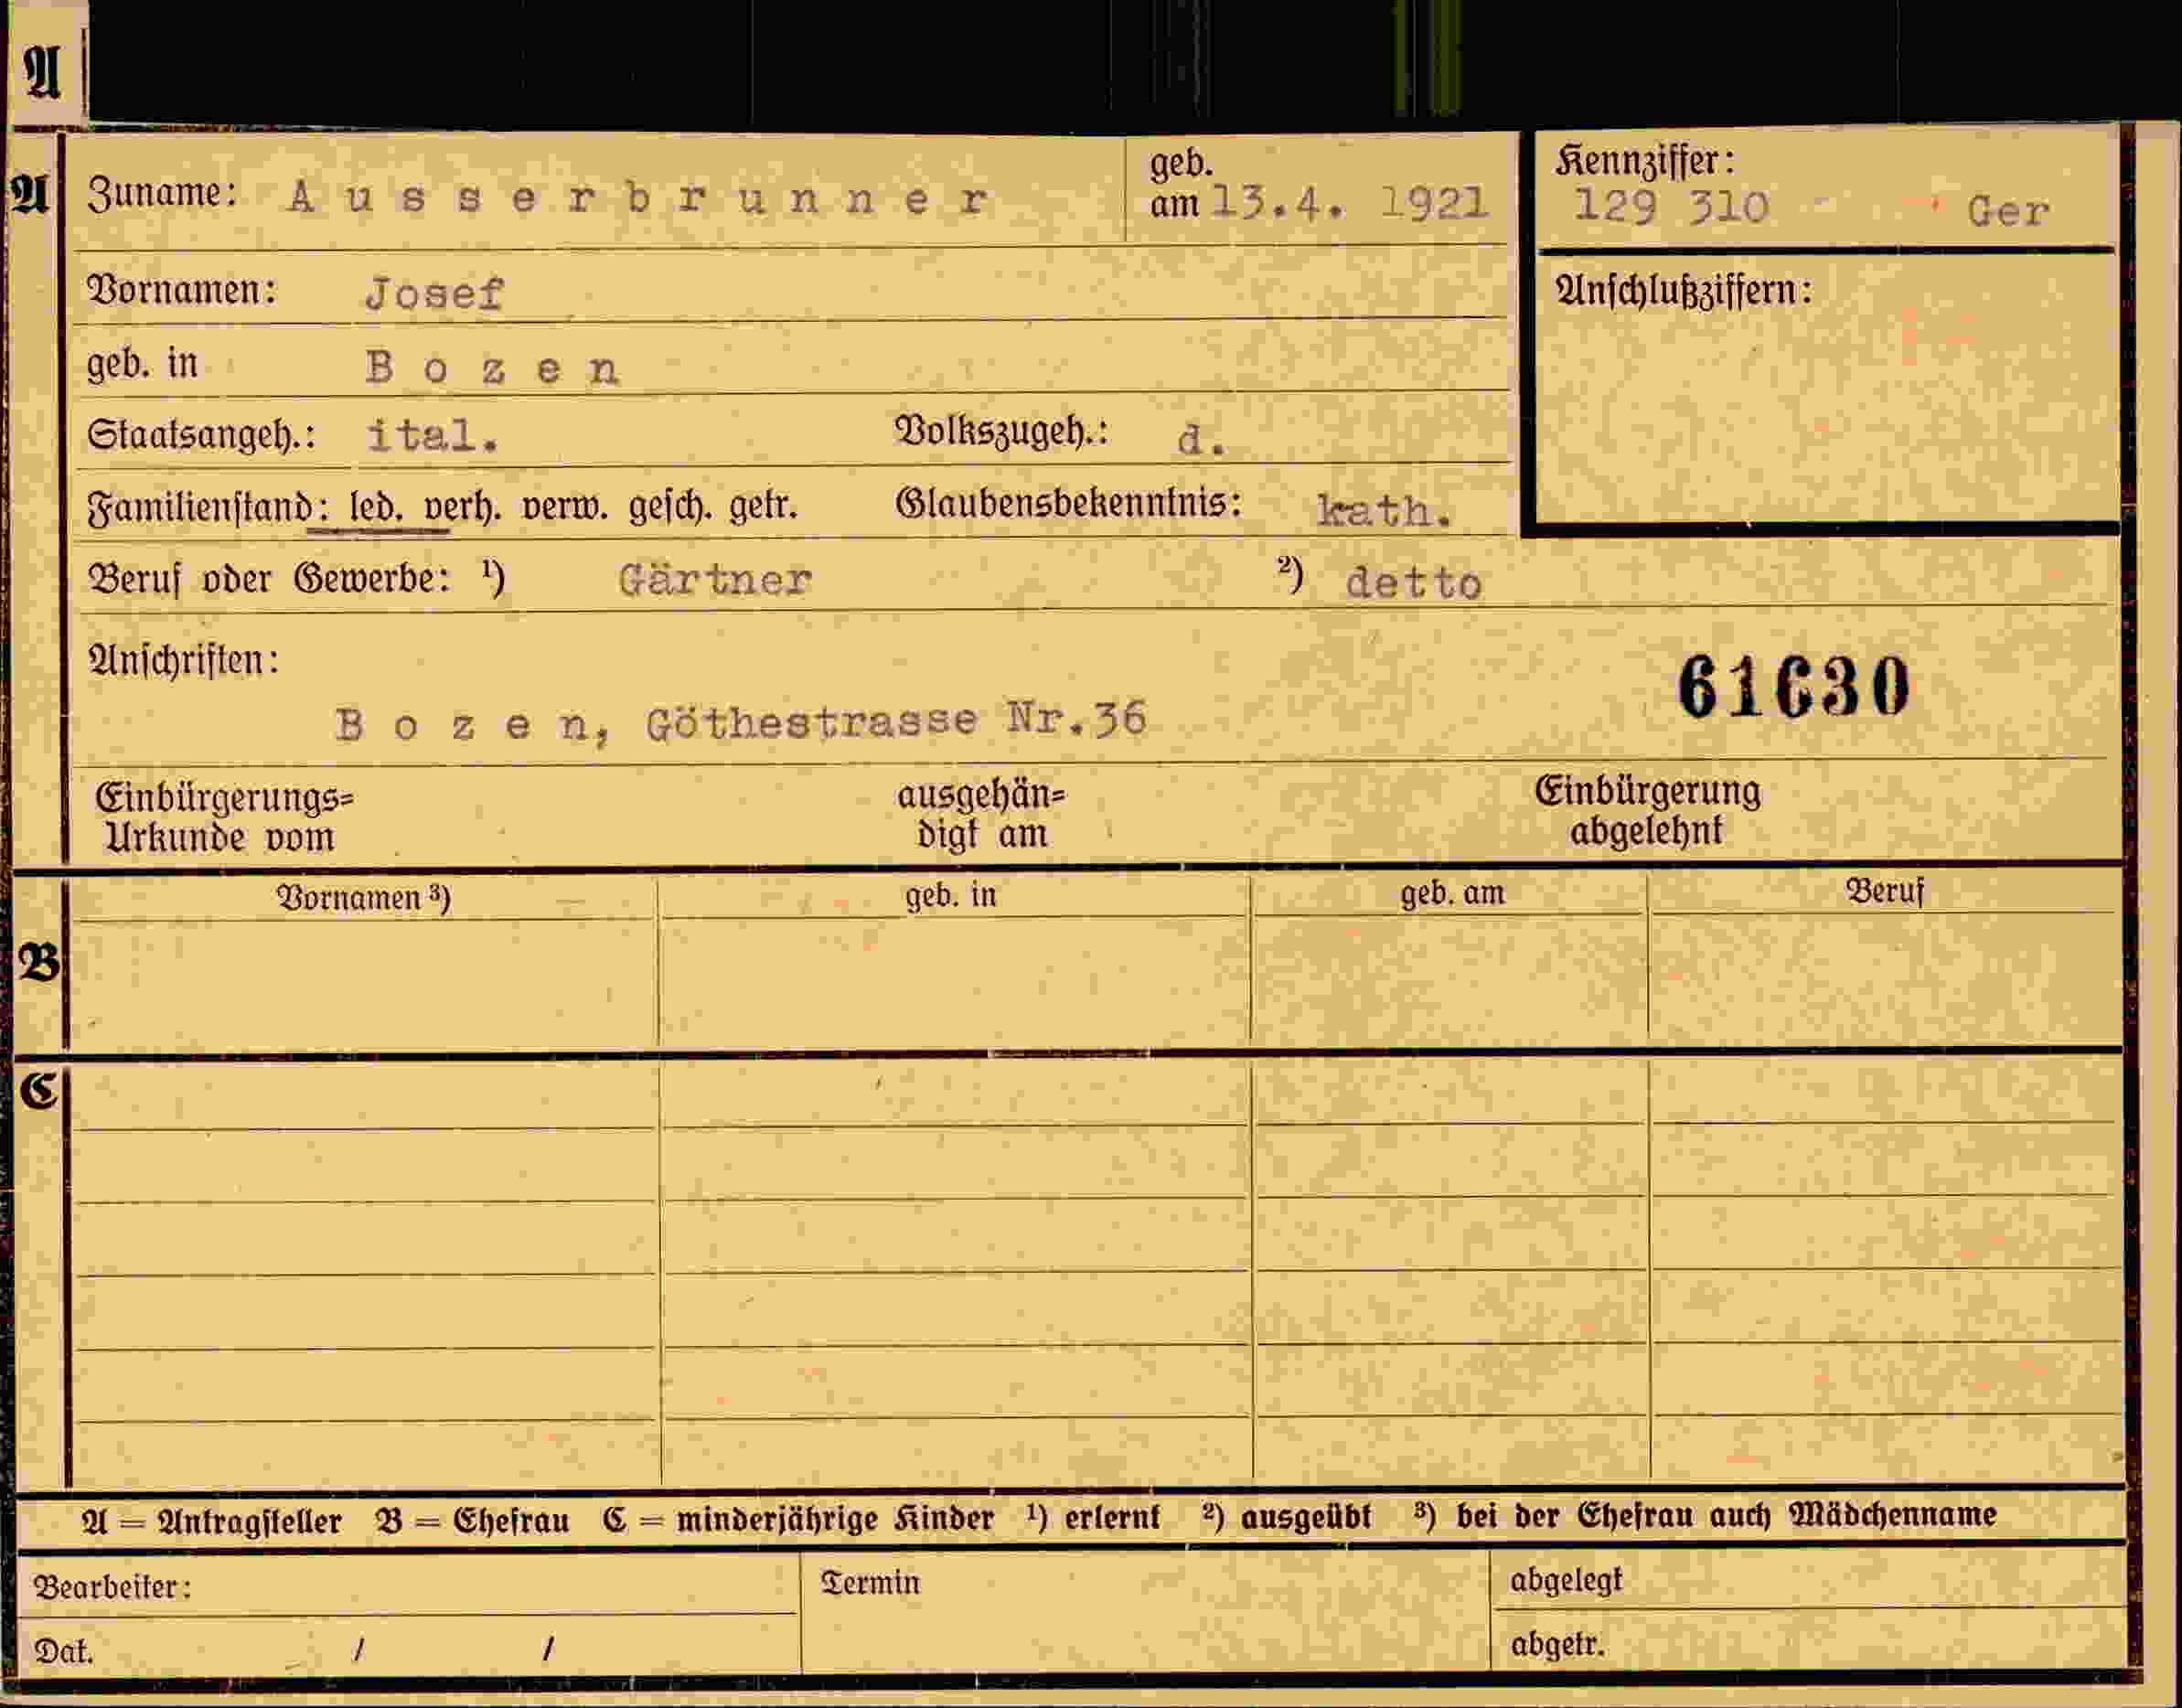 A
A
Zuname: Ausserbrunner
geb.
am 13.4. 1921
Kennziffer:
129 310 Ger
Vornamen: Josef
Anschlußziffern:
geb. in Bozen
Staatsangeh.: ital. Volkszugeh.: d.
Familienstand: led. verh. verw. gesch. getr. Glaubensbekenntnis: kath.
Beruf oder Gewerbe: ¹) Gärtner ²) detto
Anschriften:
61630
Bozen, Göthestrasse Nr.36
Einbürgerungs=
Urkunde vom
ausgehän=
digt am
Einbürgerung
abgelehnt
Vornamen ³) geb. in geb. am Beruf
B
C
A = Antragsteller B = Ehefrau C = minderjährige Kinder ¹) erlernt ²) ausgeübt ³) bei der Ehefrau auch Mädchenname
Bearbeiter: Termin abgelegt
Dat. / / abgetr.